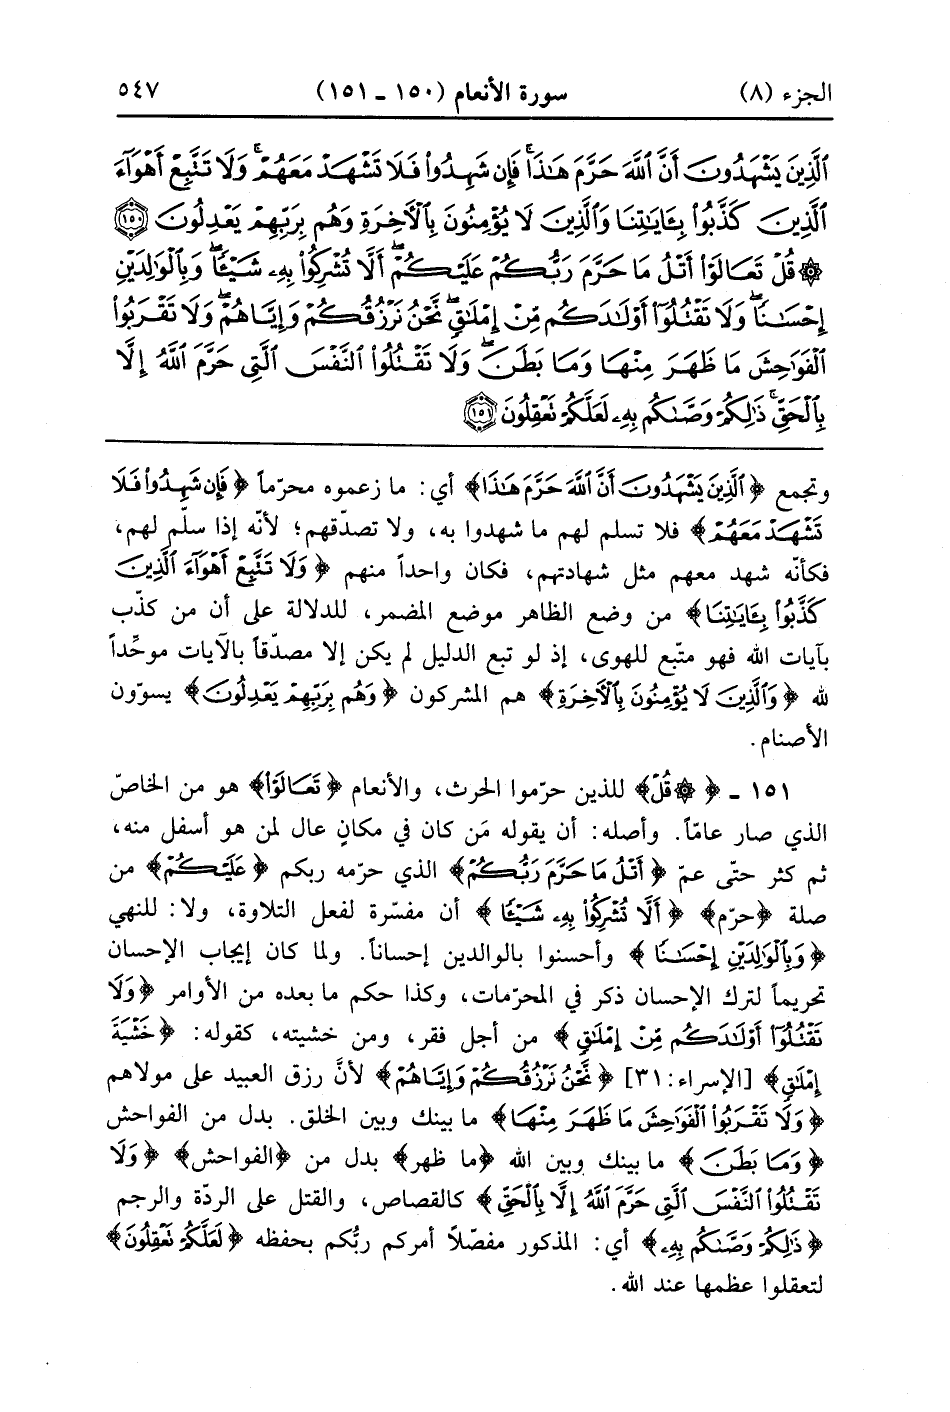 الجزء (٨) سورة الأنعام (١٥٠ ـ ١٥١) ٥٤٧
ٱلَّذِينَ يَشْهَدُونَ أَنَّ ٱللَّهَ حَرَّمَ هَٰذَا ۖ فَإِن شَهِدُوا۟ فَلَا تَشْهَدْ مَعَهُمْ ۚ وَلَا تَتَّبِعْ أَهْوَآءَ
ٱلَّذِينَ كَذَّبُوا۟ بِـَٔايَٰتِنَا وَٱلَّذِينَ لَا يُؤْمِنُونَ بِٱلْـَٔاخِرَةِ وَهُم بِرَبِّهِمْ يَعْدِلُونَ ﴿١٥٠﴾
۞ قُلْ تَعَالَوْا۟ أَتْلُ مَا حَرَّمَ رَبُّكُمْ عَلَيْكُمْ ۖ أَلَّا تُشْرِكُوا۟ بِهِۦ شَيْـًٔا ۖ وَبِٱلْوَٰلِدَيْنِ
إِحْسَٰنًا ۖ وَلَا تَقْتُلُوٓا۟ أَوْلَٰدَكُم مِّنْ إِمْلَٰقٍ ۖ نَّحْنُ نَرْزُقُكُمْ وَإِيَّاهُمْ ۖ وَلَا تَقْرَبُوا۟
ٱلْفَوَٰحِشَ مَا ظَهَرَ مِنْهَا وَمَا بَطَنَ ۖ وَلَا تَقْتُلُوا۟ ٱلنَّفْسَ ٱلَّتِى حَرَّمَ ٱللَّهُ إِلَّا
بِٱلْحَقِّ ۚ ذَٰلِكُمْ وَصَّىٰكُم بِهِۦ لَعَلَّكُمْ تَعْقِلُونَ ﴿١٥١﴾
وتجمع ﴿ٱلَّذِينَ يَشْهَدُونَ أَنَّ ٱللَّهَ حَرَّمَ هَٰذَا﴾ أي: ما زعموه محرّماً ﴿فَإِن شَهِدُوا۟ فَلَا
تَشْهَدْ مَعَهُمْ﴾ فلا تسلم لهم ما شهدوا به، ولا تصدّقهم؛ لأنّه إذا سلّم لهم،
فكأنّه شهد معهم مثل شهادتهم، فكان واحداً منهم ﴿وَلَا تَتَّبِعْ أَهْوَآءَ ٱلَّذِينَ
كَذَّبُوا۟ بِـَٔايَٰتِنَا﴾ من وضع الظاهر موضع المضمر، للدلالة على أن من كذّب
بآيات الله فهو متّبع للهوى، إذ لو تبع الدليل لم يكن إلا مصدّقاً بالآيات موحّداً
لله ﴿وَٱلَّذِينَ لَا يُؤْمِنُونَ بِٱلْـَٔاخِرَةِ﴾ هم المشركون ﴿وَهُم بِرَبِّهِمْ يَعْدِلُونَ﴾ يسوّون
الأصنام.
١٥١ ـ ﴿۞ قُلْ﴾ للذين حرّموا الحرث، والأنعام ﴿تَعَالَوْا۟﴾ هو من الخاصّ
الذي صار عامّاً. وأصله: أن يقوله مَن كان في مكانٍ عال لمن هو أسفل منه،
ثم كثر حتّى عمّ ﴿أَتْلُ مَا حَرَّمَ رَبُّكُمْ﴾ الذي حرّمه ربكم ﴿عَلَيْكُمْ﴾ من
صلة ﴿حرّم﴾ ﴿أَلَّا تُشْرِكُوا۟ بِهِۦ شَيْـًٔا﴾ أن مفسّرة لفعل التلاوة، ولا: للنهي
﴿وَبِٱلْوَٰلِدَيْنِ إِحْسَٰنًا﴾ وأحسنوا بالوالدين إحساناً. ولما كان إيجاب الإحسان
تحريماً لترك الإحسان ذكر في المحرّمات، وكذا حكم ما بعده من الأوامر ﴿وَلَا
تَقْتُلُوٓا۟ أَوْلَٰدَكُم مِّنْ إِمْلَٰقٍ﴾ من أجل فقر، ومن خشيته، كقوله: ﴿خَشْيَةَ
إِمْلَٰقٍ﴾ [الإسراء: ٣١] ﴿نَّحْنُ نَرْزُقُكُمْ وَإِيَّاهُمْ﴾ لأنَّ رزق العبيد على مولاهم
﴿وَلَا تَقْرَبُوا۟ ٱلْفَوَٰحِشَ مَا ظَهَرَ مِنْهَا﴾ ما بينك وبين الخلق. بدل من الفواحش
﴿وَمَا بَطَنَ﴾ ما بينك وبين الله ﴿ما ظهر﴾ بدل من ﴿الفواحش﴾ ﴿وَلَا
تَقْتُلُوا۟ ٱلنَّفْسَ ٱلَّتِى حَرَّمَ ٱللَّهُ إِلَّا بِٱلْحَقِّ﴾ كالقصاص، والقتل على الردّة والرجم
﴿ذَٰلِكُمْ وَصَّىٰكُم بِهِۦ﴾ أي: المذكور مفصّلاً أمركم ربُّكم بحفظه ﴿لَعَلَّكُمْ تَعْقِلُونَ﴾
لتعقلوا عظمها عند الله.